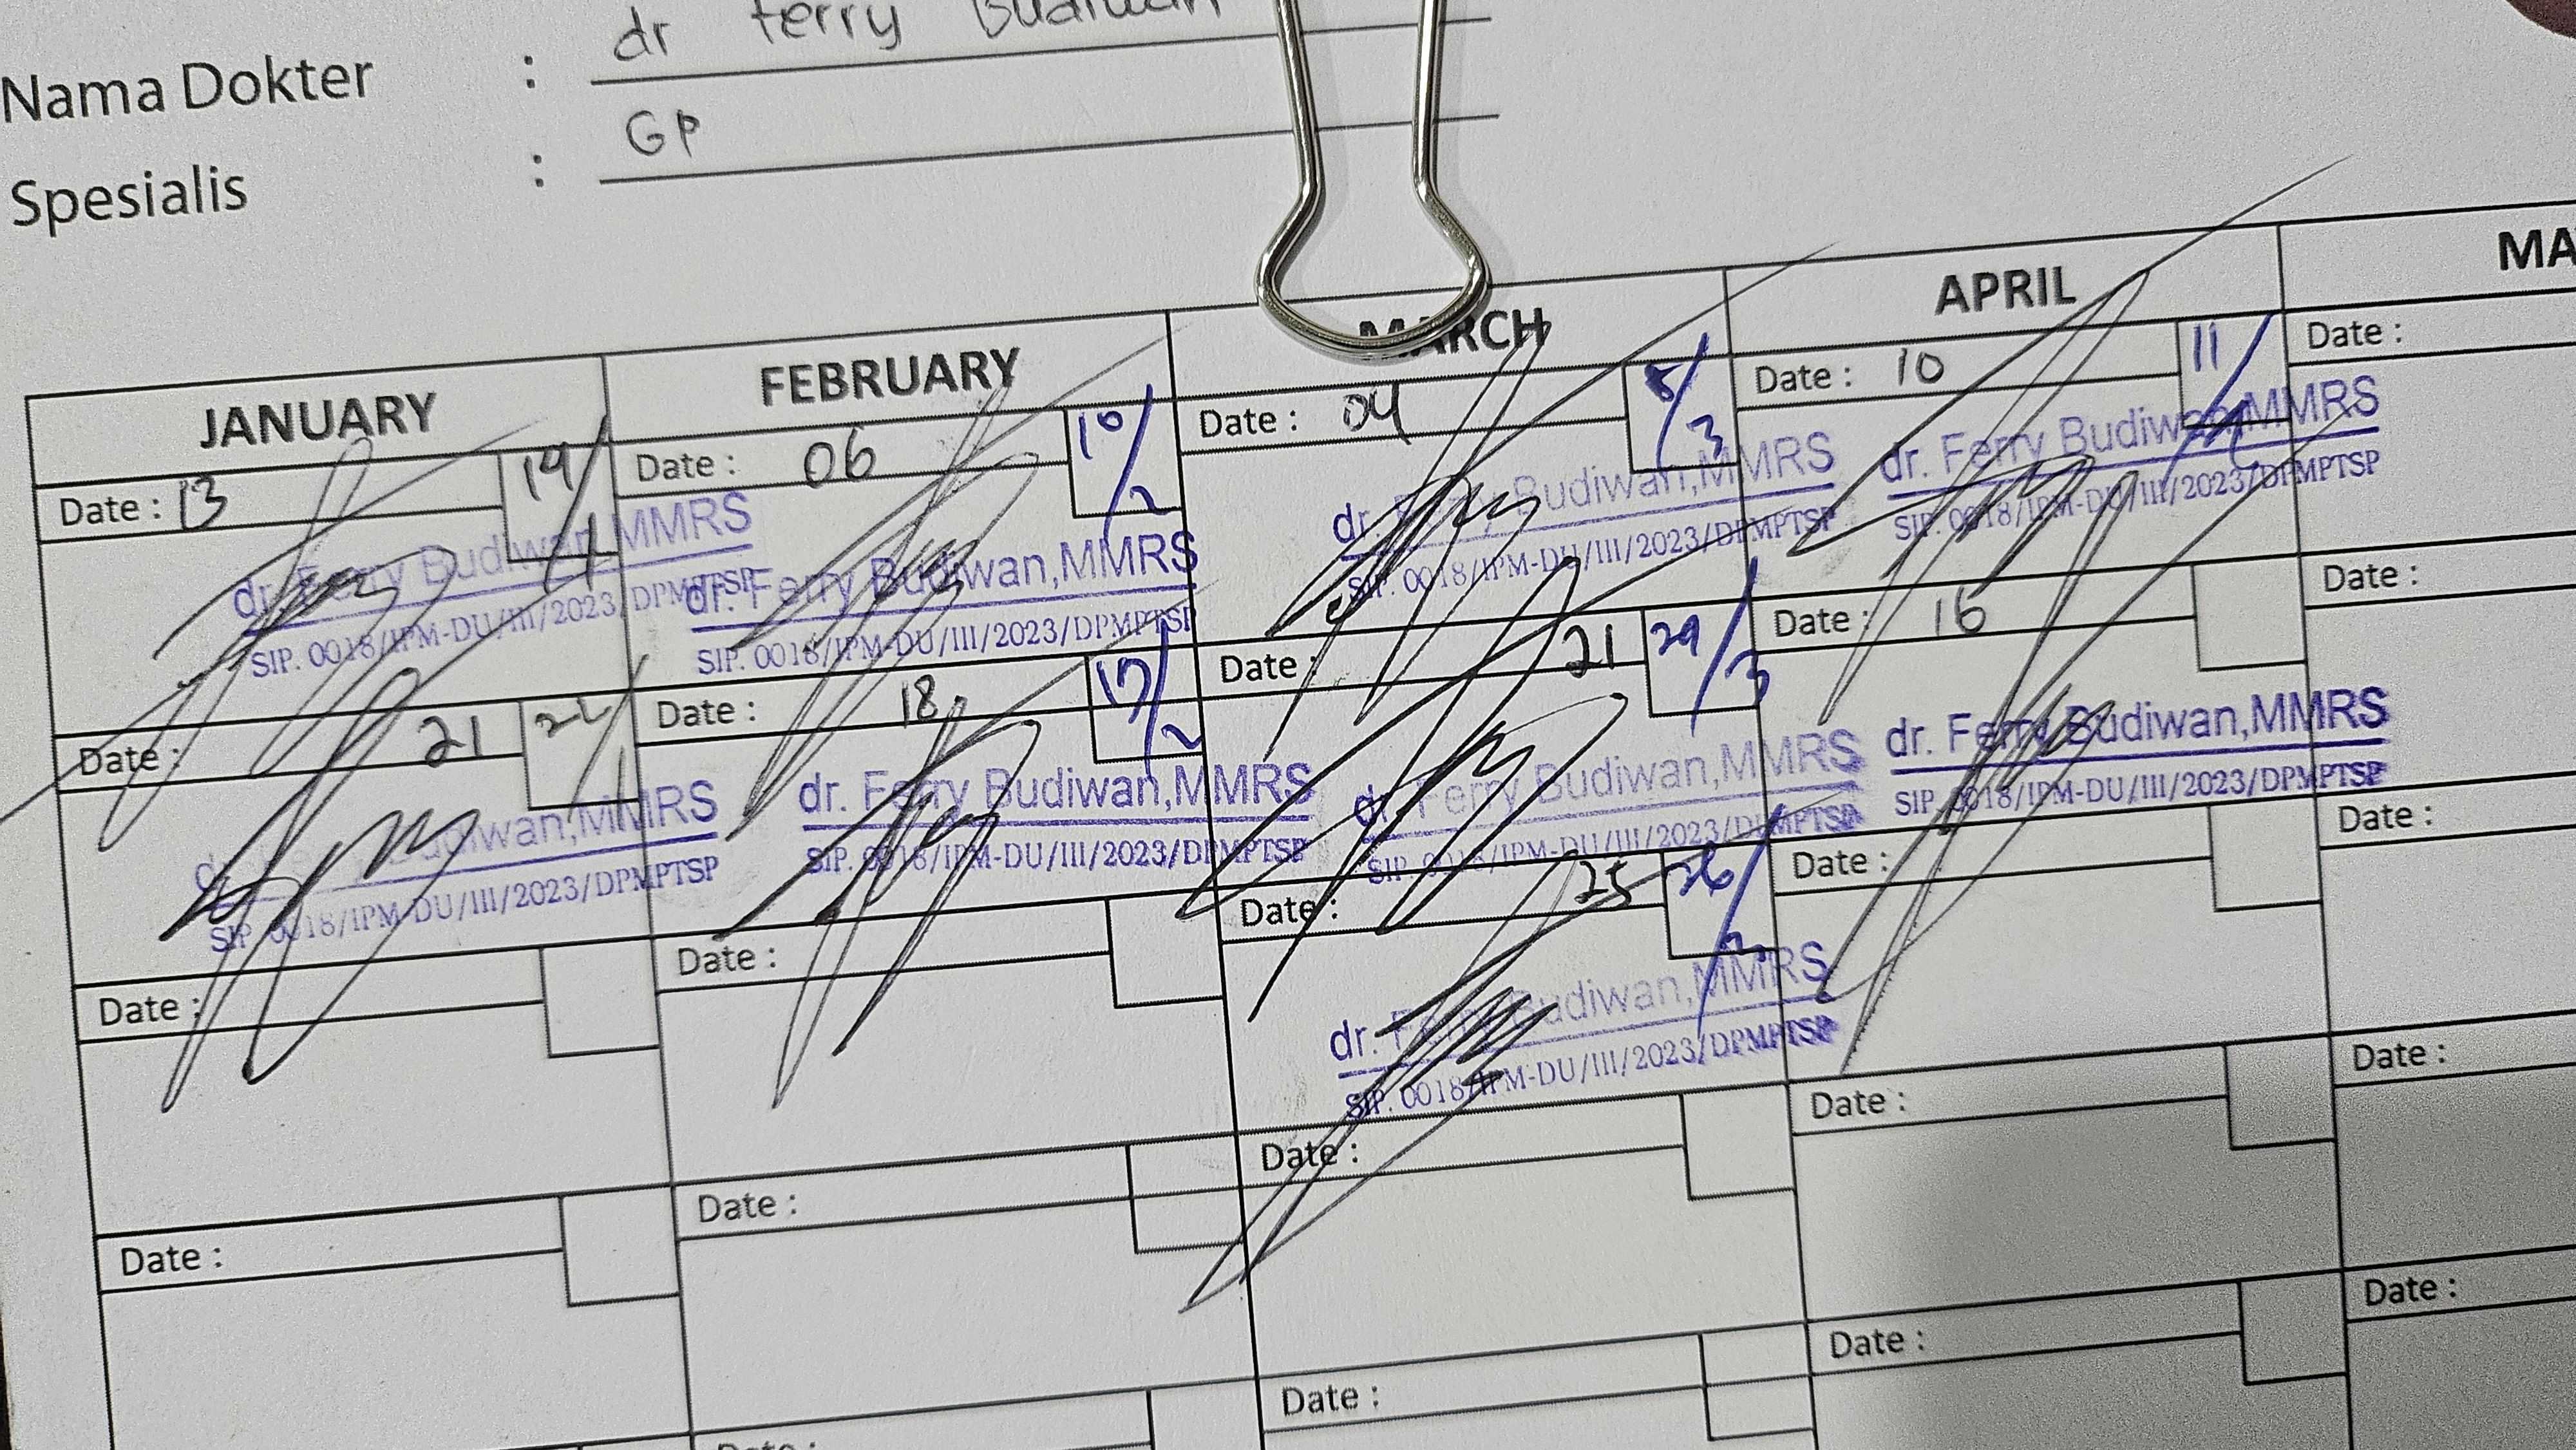 Nama Dokter : dr Ferry Budiwan
Spesialis : GP
JANUARY
Date : 13
14/1
dr. Ferry Budiwan,MMRS
SIP. 0018/IPM-DU/III/2023/DPMPTSP
Date : 21
22/1
Budiwan,MMRS
SIP. 0018/IPM-DU/III/2023/DPMPTSP
Date :
Date :
FEBRUARY
Date : 06
10/2
dr. Ferry Budiwan,MMRS
SIP. 0018/IPM-DU/III/2023/DPMPTSP
Date : 18
17/2
dr. Ferry Budiwan,MMRS
SIP. 0018/IPM-DU/III/2023/DPMPTSP
Date :
Date :
Date :
MARCH
Date : 04
/3
dr. Ferry Budiwan,MMRS
SIP. 0018/IPM-DU/III/2023/DPMPTSP
Date : 21
/3
dr. Ferry Budiwan,MMRS
SIP. 0018/IPM-DU/III/2023/DPMPTSP
Date : 25
26/3
dr. Ferry Budiwan,MMRS
SIP. 0018/IPM-DU/III/2023/DPMPTSP
Date :
Date :
APRIL
Date : 10
11/4
dr. Ferry Budiwan,MMRS
SIP. 0018/IPM-DU/III/2023/DPMPTSP
Date : 16
dr. Ferry Budiwan,MMRS
SIP. 0018/IPM-DU/III/2023/DPMPTSP
Date :
Date :
Date :
MA
Date :
Date :
Date :
Date :
Date :